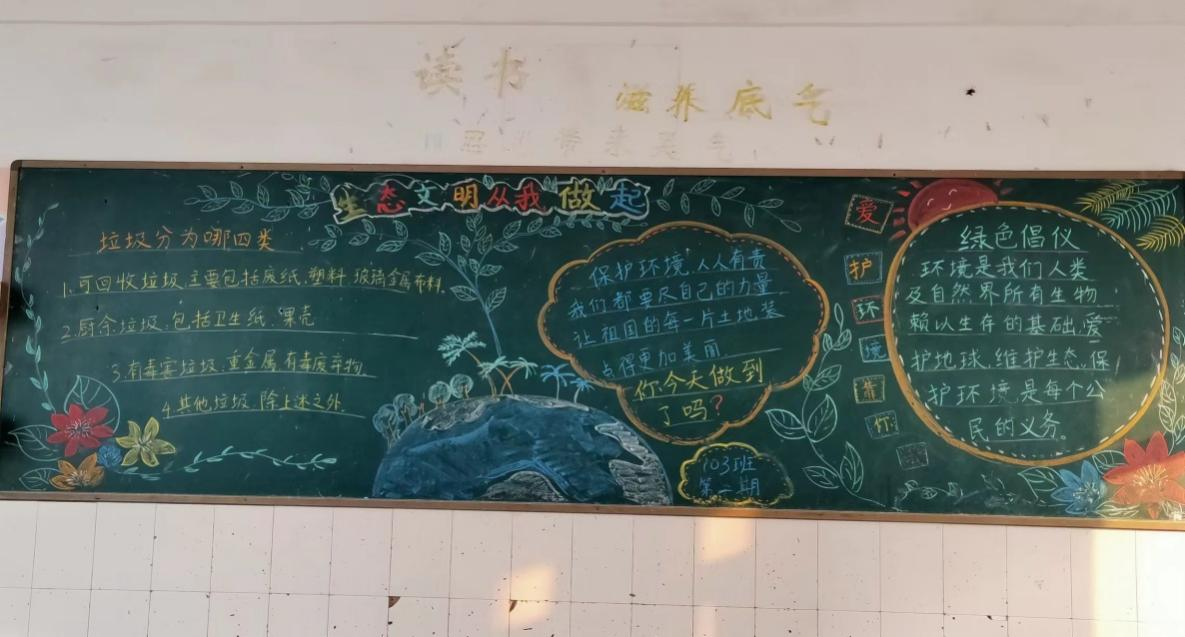 读书
滋养底气
生态文明从我做起
垃圾分为哪四类
1.可回收垃圾.主要包括废纸.塑料.玻璃金属布料.
2.厨余垃圾.包括卫生纸.果壳
3.有毒害垃圾.重金属.有毒废弃物.
4.其他垃圾.除上述之外.
保护环境.人人有责
我们都要尽自己的力量
让祖国的每一片土地装
点得更加美丽
你今天做到
了吗?
103班
第二期
爱
护
环
境
靠
你
绿色倡仪
环境是我们人类
及自然界所有生物
赖以生存的基础.爱
护地球.维护生态.保
护环境.是每个公
民的义务。